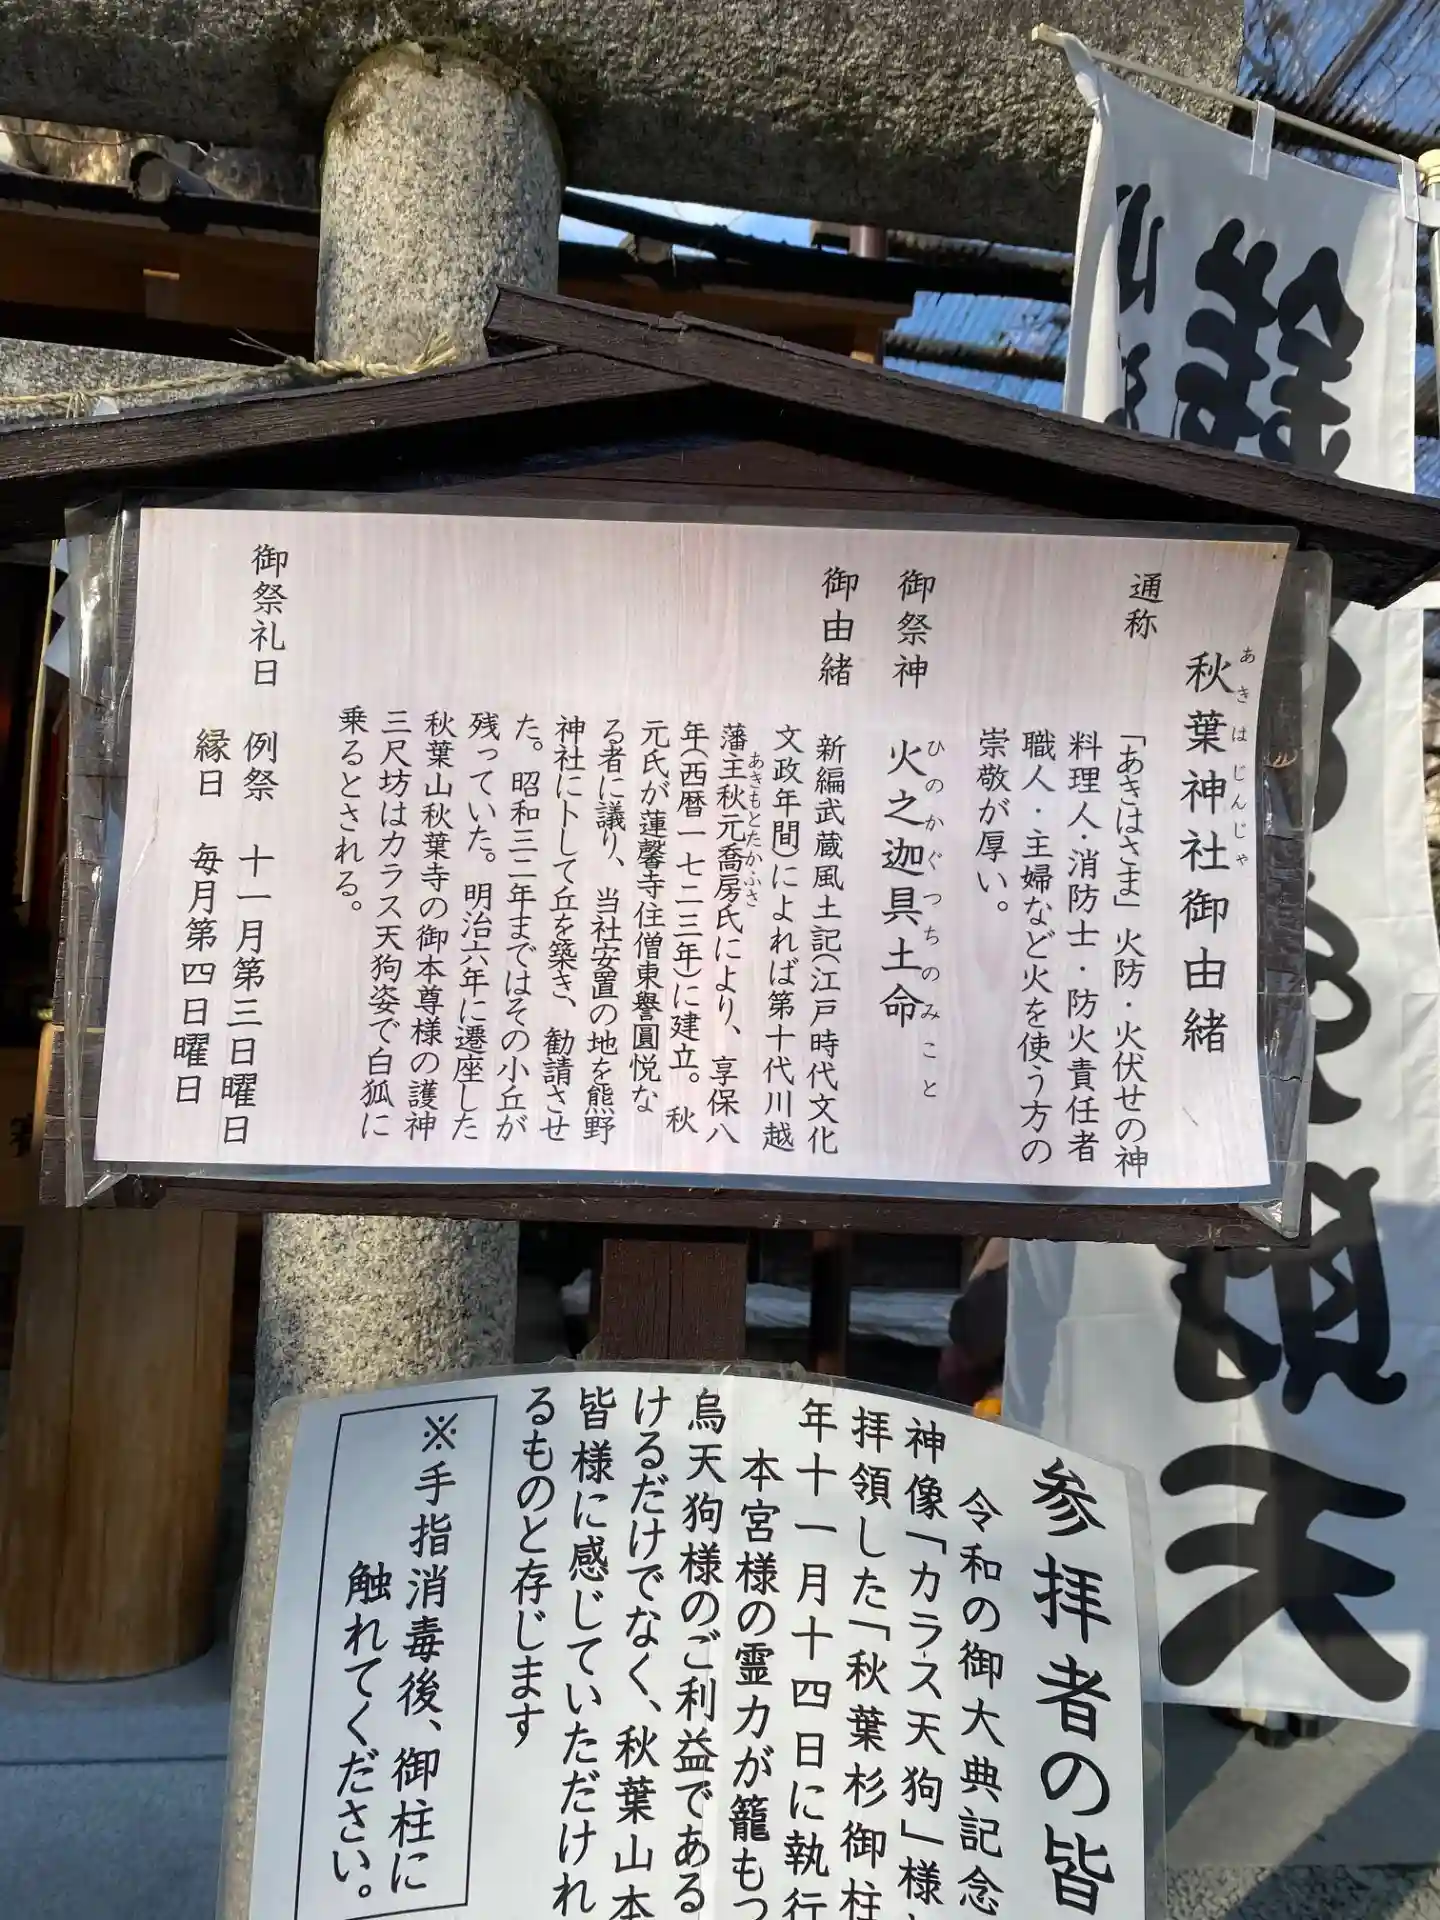 秋葉神社御由緒
あきはじんじゃ
通称
「あきはさま」火防・火伏せの神
料理人・消防士・防火責任者
職人・主婦など火を使う方の
崇敬が厚い。
御祭神
火之迦具土命
ひのかぐつちのみこと
御由緒
新編武蔵風土記(江戸時代文化
文政年間)によれば第十代川越
藩主秋元喬房氏により、享保八
あきもとたかふさ
年(西暦一七二三年)に建立。秋
元氏が蓮馨寺住僧東譽圓悦な
る者に議り、当社安置の地を熊野
神社に卜して丘を築き、勧請させ
た。昭和三二年まではその小丘が
残っていた。明治六年に遷座した
秋葉山秋葉寺の御本尊様の護神
三尺坊はカラス天狗姿で白狐に
乗るとされる。
御祭礼日
例祭 十一月第三日曜日
縁日 毎月第四日曜日
参拝者の皆
令和の御大典記念
神像「カラス天狗」様
拝領した「秋葉杉御柱
年十一月十四日に執行
本宮様の霊力が籠もつ
烏天狗様のご利益である
けるだけでなく、秋葉山本
皆様に感じていただけれ
るものと存じます
※手指消毒後、御柱に
触れてください。
天